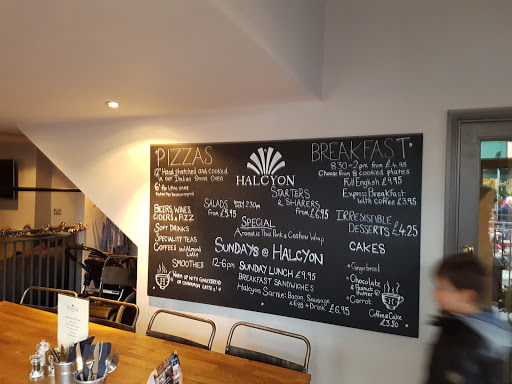 PIZZAS
12" Hand stretched and cooked
in our Italian Stone Oven
6" for little ones
BEERS, WINES
CIDERS & FIZZ
SOFT DRINKS
SPECIALITY TEAS
COFFEES
SMOOTHIES
WARM UP WITH GINGERBREAD
OR CINNAMON LATTE
HALCYON
SALADS
from £5.95
STARTERS
& SHARERS
from £6.95
SPECIAL
Aromatic Thai Pork & Cashew Wrap
SUNDAYS @ HALCYON
12-6pm SUNDAY LUNCH £9.95
BREAKFAST SANDWICHES
Halcyon Sarnie: Bacon, Sausage
& Egg + Drink £6.95
BREAKFAST
8.30-2pm from £4.95
Choose from 8 cooked plates
Full English £9.95
Express Breakfast
with Coffee £3.95
IRRESISTIBLE
DESSERTS £4.25
CAKES
Gingerbread
Chocolate
& Peanut
Butter
Carrot
Coffee & Cake
£3.50